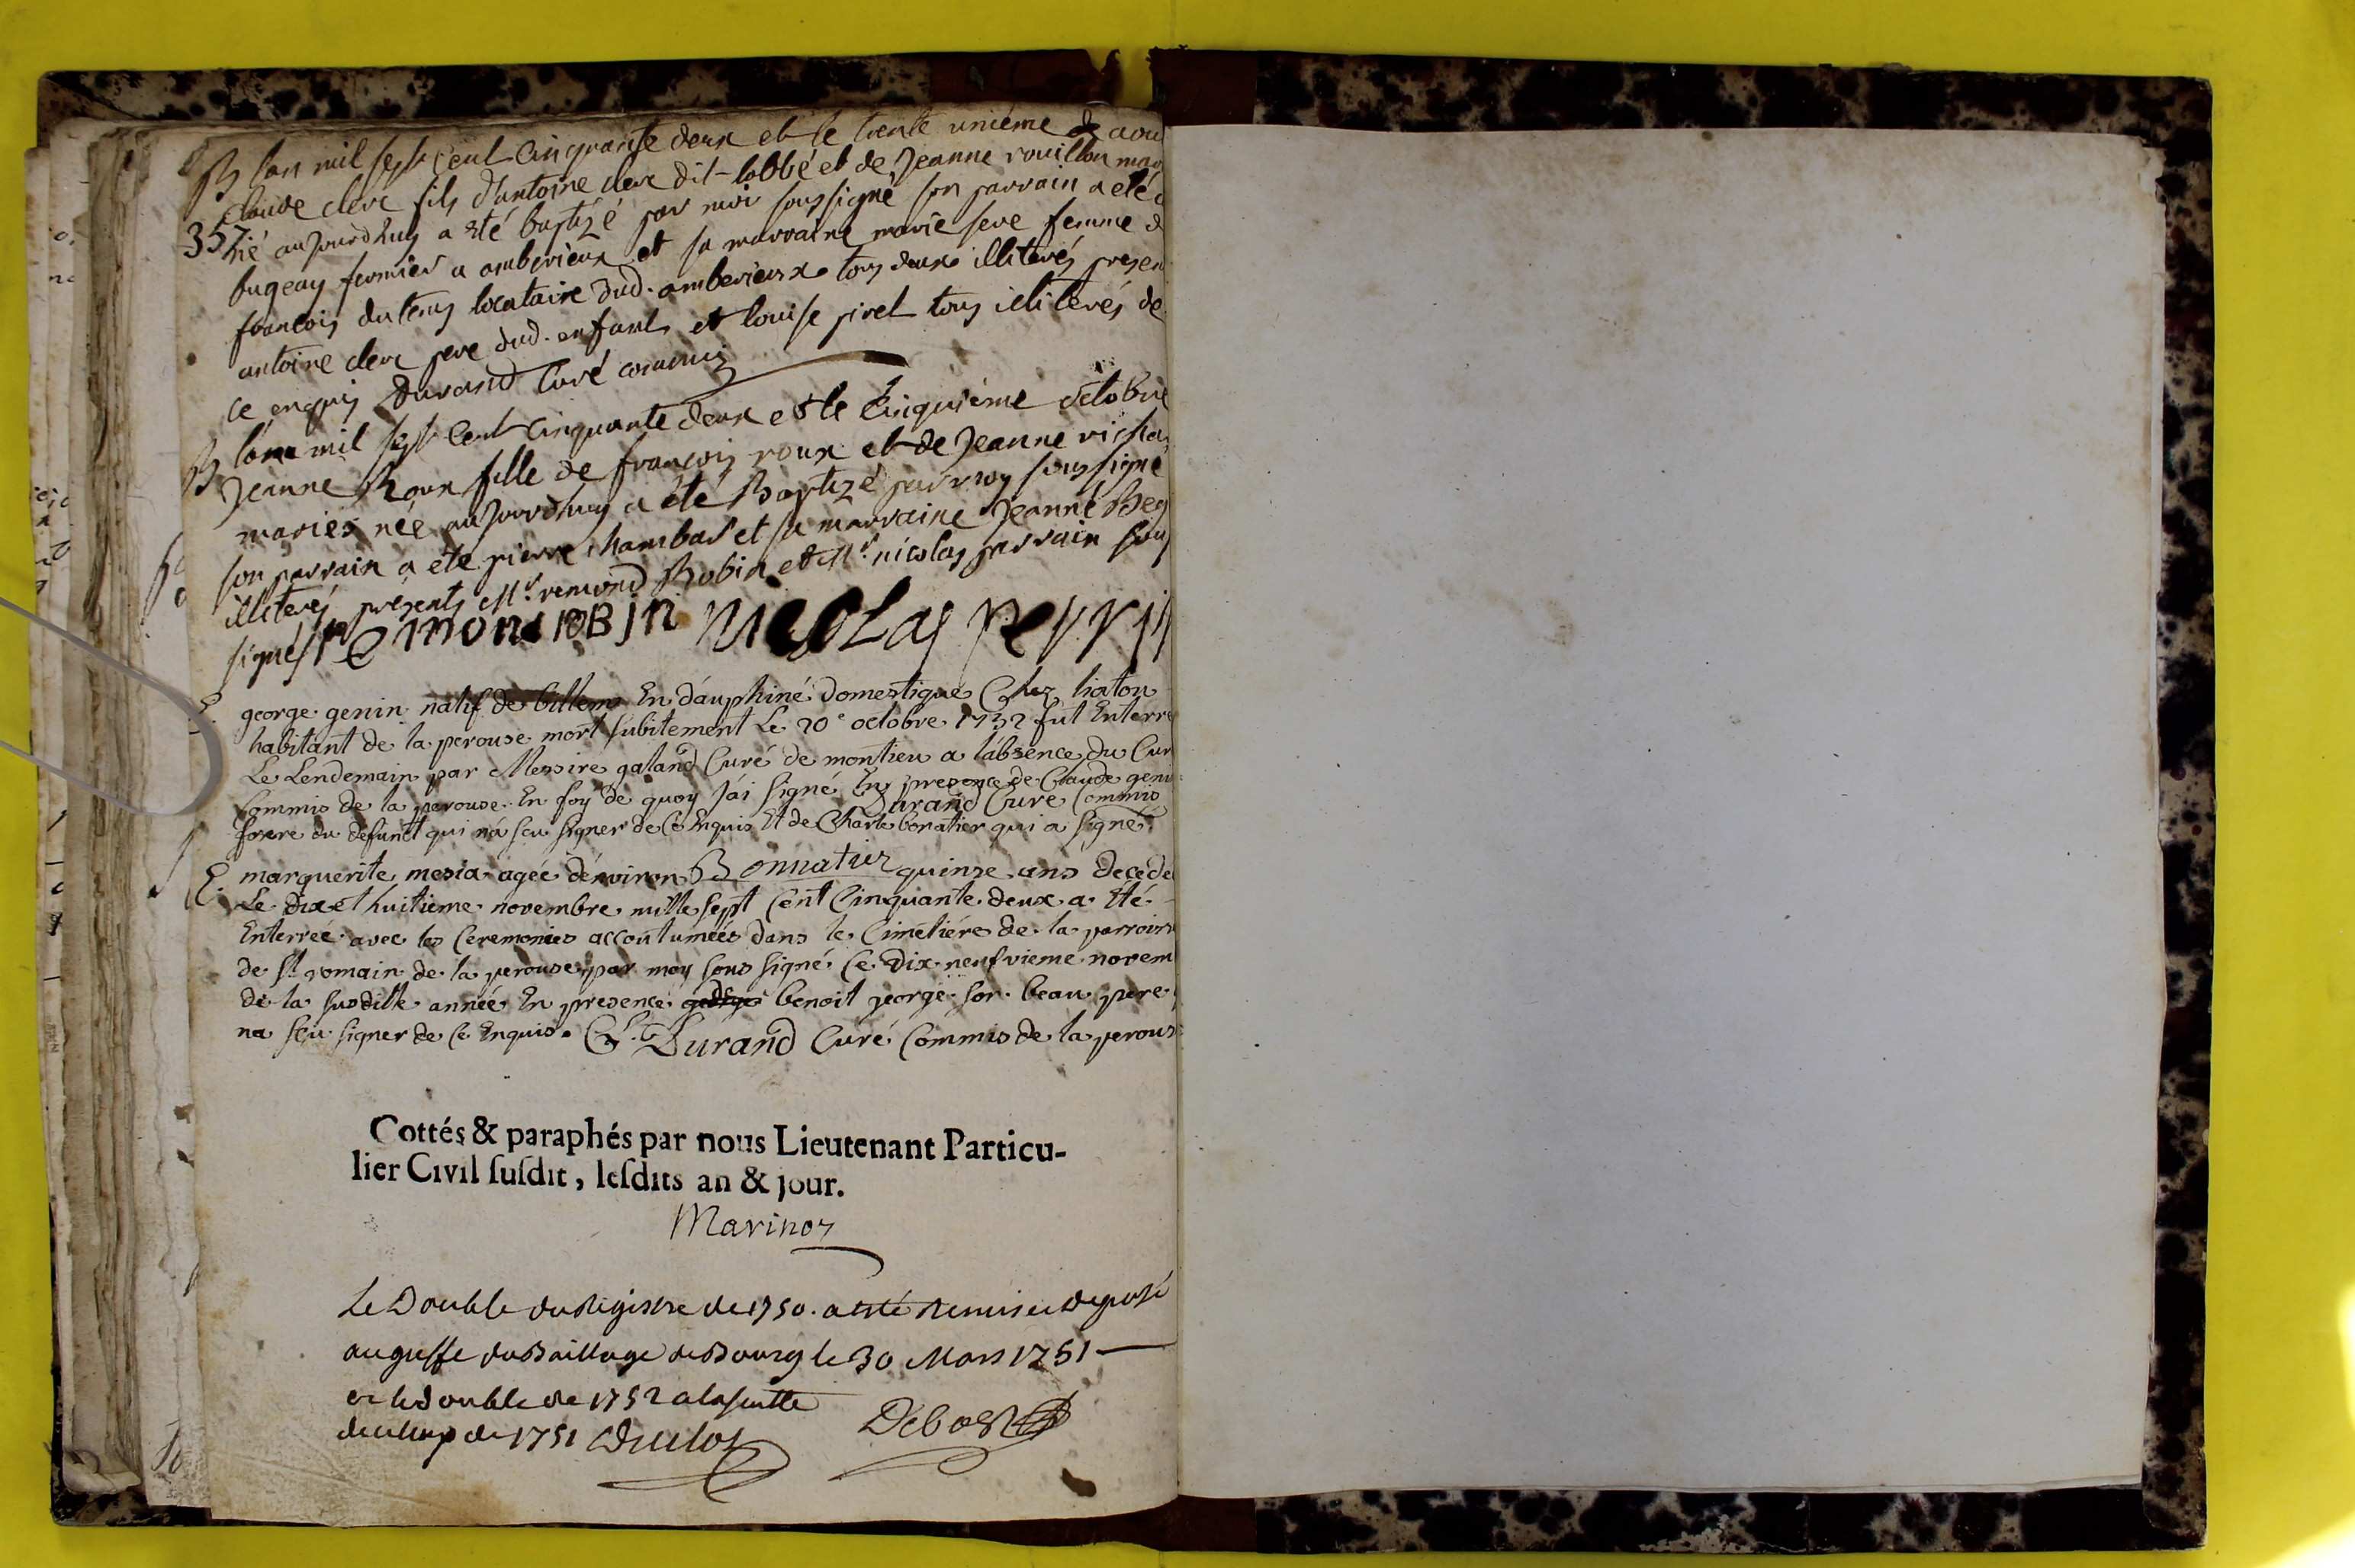 B lan mil sept cent cinquante deux et le trente unième d aou
claude clerc fils d'antoine clerc dit labbé et de jeanne rouillon mar
357 rié aujourdhuy a eté baptizé par moi soussigné son parrain a eté
bugeay fermier a amberieux et sa marraine marie seve femme d
françois dutens locataire dud. amberieux tous deux illiterés presen
antoine clerc pere dud. enfant et louise piret tous illiterés de
ce enquis Durand Curé commis
B lan mil sept cent cinquante deux et le cinquième octobre
Jeanne Roux fille de françois roux et de Jeanne richa
mariés née aujourdhuy a été Baptizé par moy soussigné
son parrain a eté pierre chambar et sa marraine Jeanne Beg
illiterés presents Mr. remond Robin et Mr. nicolas parrain sous
signés remond robin nicolas perrin
E. george genin natif de billem En dauphiné domestique Chez liaton
habitant de la perouse mort subitement Le 20e octobre 1752 fut Enterré
Le Lendemain par Messire galand Curé de montieu a l'absence du Cur
Commis de la perouse. En foy de quoy j'ai signé En presence de Claude geni
Durand Curé Commis
frere du defunct qui n'a seu signer de Ce Enquis Et de Charle bonatier qui a signé.
Bonnatier
E. marguerite mesia agée d'environ quinze ans decedé
Le dix et huitieme novembre mille sept Cent Cinquante deux a Eté
Enterrée avec les Ceremonies accoutumées dans le Cimetiére de la parroiss
de St romain de la perouse par moy sous signé Ce Dix neufvieme novem
de la susditte année En presence de benoit george son beau pere
na seu signer de Ce Enquis. Durand Curé Commis de la perous
Cottés & paraphés par nous Lieutenant Particu-
lier Civil ſuſdit, leſdits an & jour.
Marinon
Le Double du Registre de 1750. a eté Remis et deposé
au greffe du Baillage de Bourg le 30 Mars 1751
et le double de 1752 a la suitte
de celuy de 1751